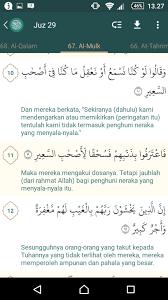 13.27
Juz 29
68. Al-Qalam
67. Al-Mulk
66. At-Tahrim
10
وَقَالُوا۟ لَوْ كُنَّا نَسْمَعُ أَوْ نَعْقِلُ مَا كُنَّا فِىٓ أَصْحَٰبِ
ٱلسَّعِيرِ
Dan mereka berkata, "Sekiranya (dahulu) kami
mendengarkan atau memikirkan (peringatan itu)
tentulah kami tidak termasuk penghuni neraka
yang menyala-nyala."
11
فَٱعْتَرَفُوا۟ بِذَنۢبِهِمْ فَسُحْقًا لِّأَصْحَٰبِ
ٱلسَّعِيرِ
Maka mereka mengakui dosanya. Tetapi jauhlah
(dari rahmat Allah) bagi penghuni neraka yang
menyala-nyala itu.
12
إِنَّ ٱلَّذِينَ يَخْشَوْنَ رَبَّهُم بِٱلْغَيْبِ لَهُم مَّغْفِرَةٌ
وَأَجْرٌ كَبِيرٌ
Sesungguhnya orang-orang yang takut kepada
Tuhannya yang tidak terlihat oleh mereka, mereka
memperoleh ampunan dan pahala yang besar.